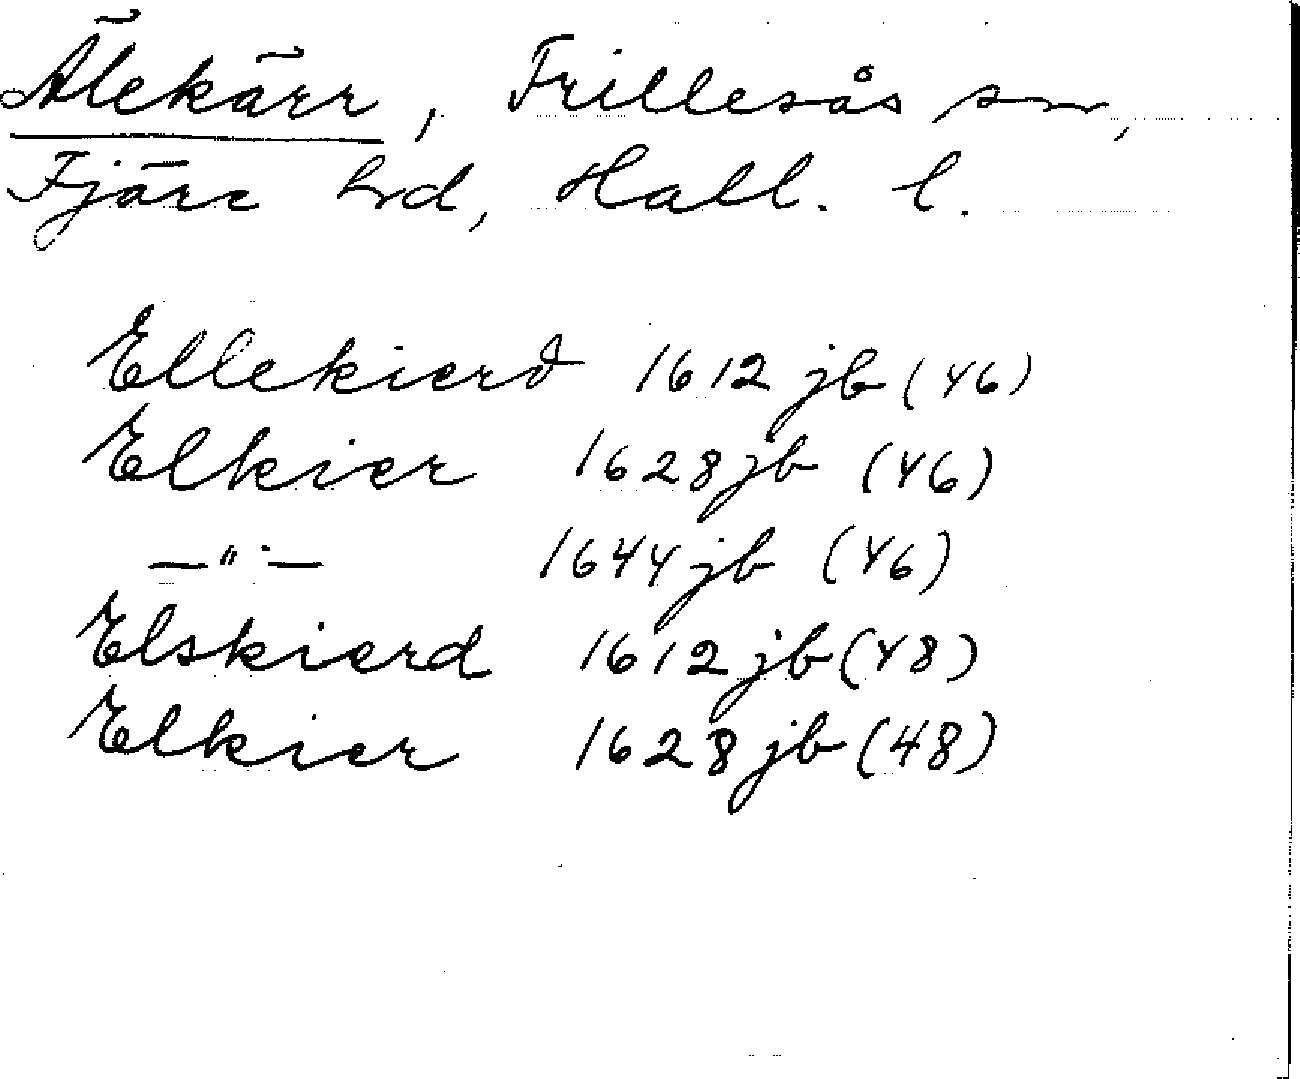 Älekärr, Frillesås sn,
Fjäre hd, Hall. l.
Ellekierd 1612 jb (46)
Elkier 1628 jb (46)
—"— 1644 jb (46)
Elskierd 1612 jb (48)
Elkier 1628 jb (48)